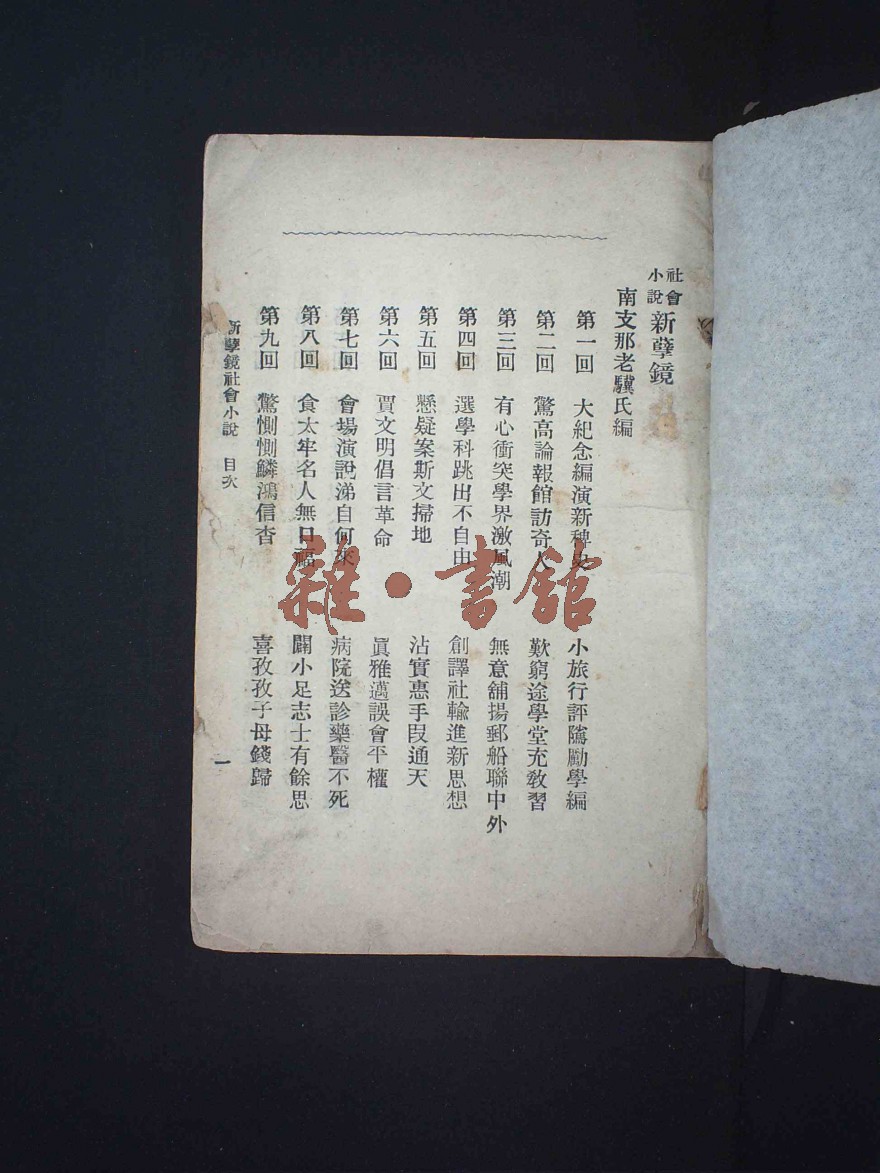 社會小說 新孽鏡
南支那老驥氏編
第一回 大紀念編演新稗史 小旅行評隲勵學編
第二回 驚高論報館訪奇人 歎窮途學堂充敎習
第三回 有心衝突學界激風潮 無意舖揚郵船聯中外
第四回 選學科跳出不自由 創譯社輸進新思想
第五回 懸疑案斯文掃地 沾實惠手段通天
第六回 賈文明倡言革命 眞雅邁誤會平權
第七回 會場演說涕自何來 病院送診藥醫不死
第八回 食太牢名人無口福 闢小足志士有餘思
第九回 驚惻惻鱗鴻信杳 喜孜孜子母錢歸
新孽鏡社會小說 目次 一
雜·書館